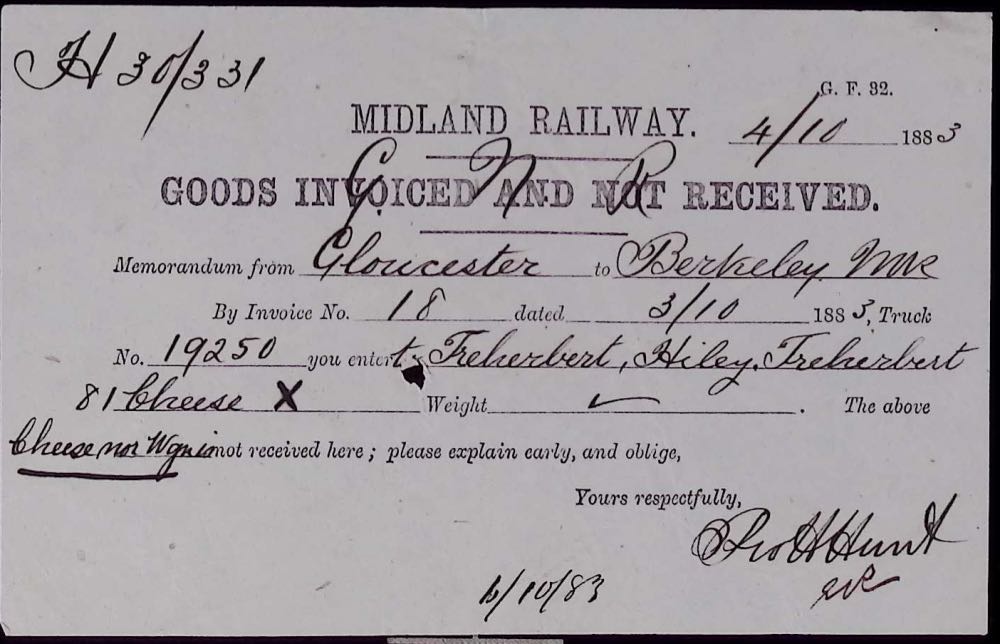 H 30/331
G. F. 32.
MIDLAND RAILWAY. 4/10 1883
GOODS INVOICED AND NOT RECEIVED.
G N R
Memorandum from Gloucester to Berkeley
By Invoice No. 18 dated 3/10 1883, Truck
No. 19250 you enter t Treherbert, Hiley, Treherbert
81 Cheese X Weight ✓. The above
Cheese nor Wgn is not received here; please explain early, and oblige,
Yours respectfully,
Geo H Hunt
6/10/83